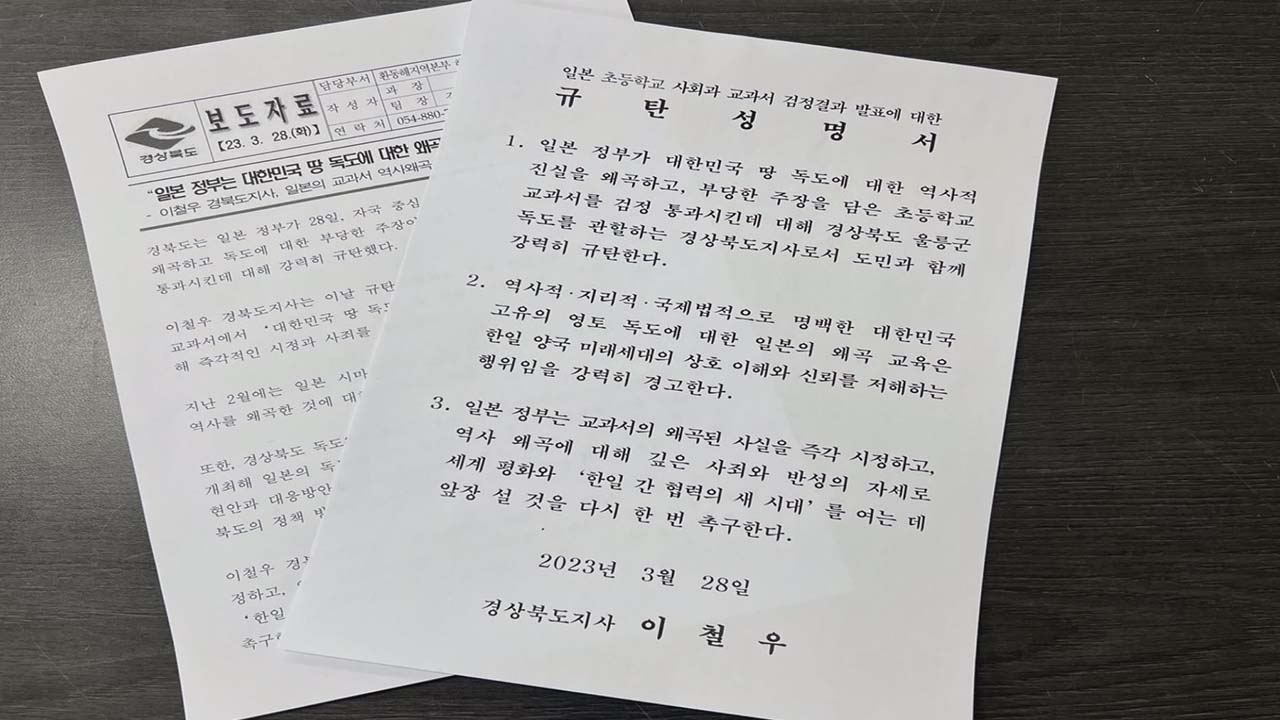 보도자료
【23. 3. 28.(화)】
경상북도
담당부서 환동해지역본부
작성자 과장
팀장
연락처 054-880-
"일본 정부는 대한민국 땅 독도에 대한 왜곡
- 이철우 경북도지사, 일본의 교과서 역사왜곡
경북도는 일본 정부가 28일, 자국 중심
왜곡하고 독도에 대한 부당한 주장이
통과시킨데 대해 강력히 규탄했다.
이철우 경북도지사는 이날 규탄
교과서에서 '대한민국 땅 독도
해 즉각적인 시정과 사죄를
지난 2월에는 일본 시마
역사를 왜곡한 것에 대
또한, 경상북도 독도
개최해 일본의 독
현안과 대응방안
북도의 정책 방
이철우 경북
정하고,
'한일
촉구
일본 초등학교 사회과 교과서 검정결과 발표에 대한
규 탄 성 명 서
1. 일본 정부가 대한민국 땅 독도에 대한 역사적
진실을 왜곡하고, 부당한 주장을 담은 초등학교
교과서를 검정 통과시킨데 대해 경상북도 울릉군
독도를 관할하는 경상북도지사로서 도민과 함께
강력히 규탄한다.
2. 역사적·지리적·국제법적으로 명백한 대한민국
고유의 영토 독도에 대한 일본의 왜곡 교육은
한일 양국 미래세대의 상호 이해와 신뢰를 저해하는
행위임을 강력히 경고한다.
3. 일본 정부는 교과서의 왜곡된 사실을 즉각 시정하고,
역사 왜곡에 대해 깊은 사죄와 반성의 자세로
세계 평화와 '한일 간 협력의 새 시대'를 여는 데
앞장 설 것을 다시 한 번 촉구한다.
2023년 3월 28일
경상북도지사 이 철 우